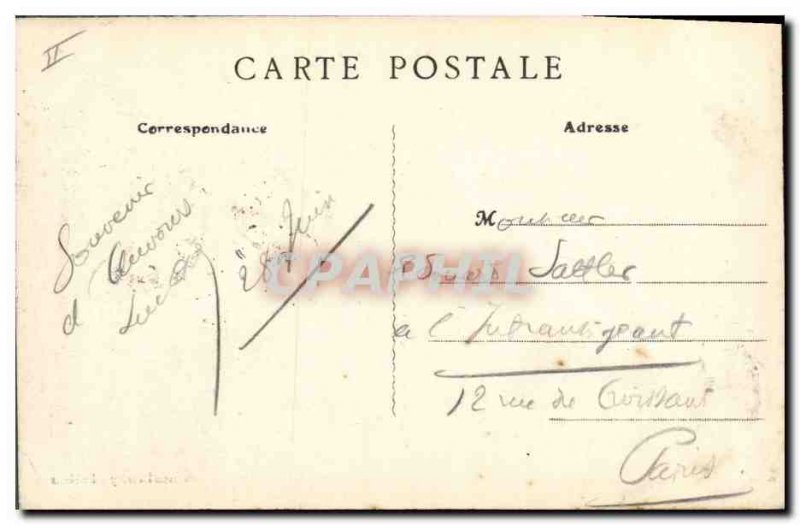 II
CARTE POSTALE
Correspondance
Adresse
Souvenir
d'Auvours
Lucien
28 Juin
Monsieur
Sattler
à l'Intransigeant
12 rue du Croissant
Paris
CPAPHIL